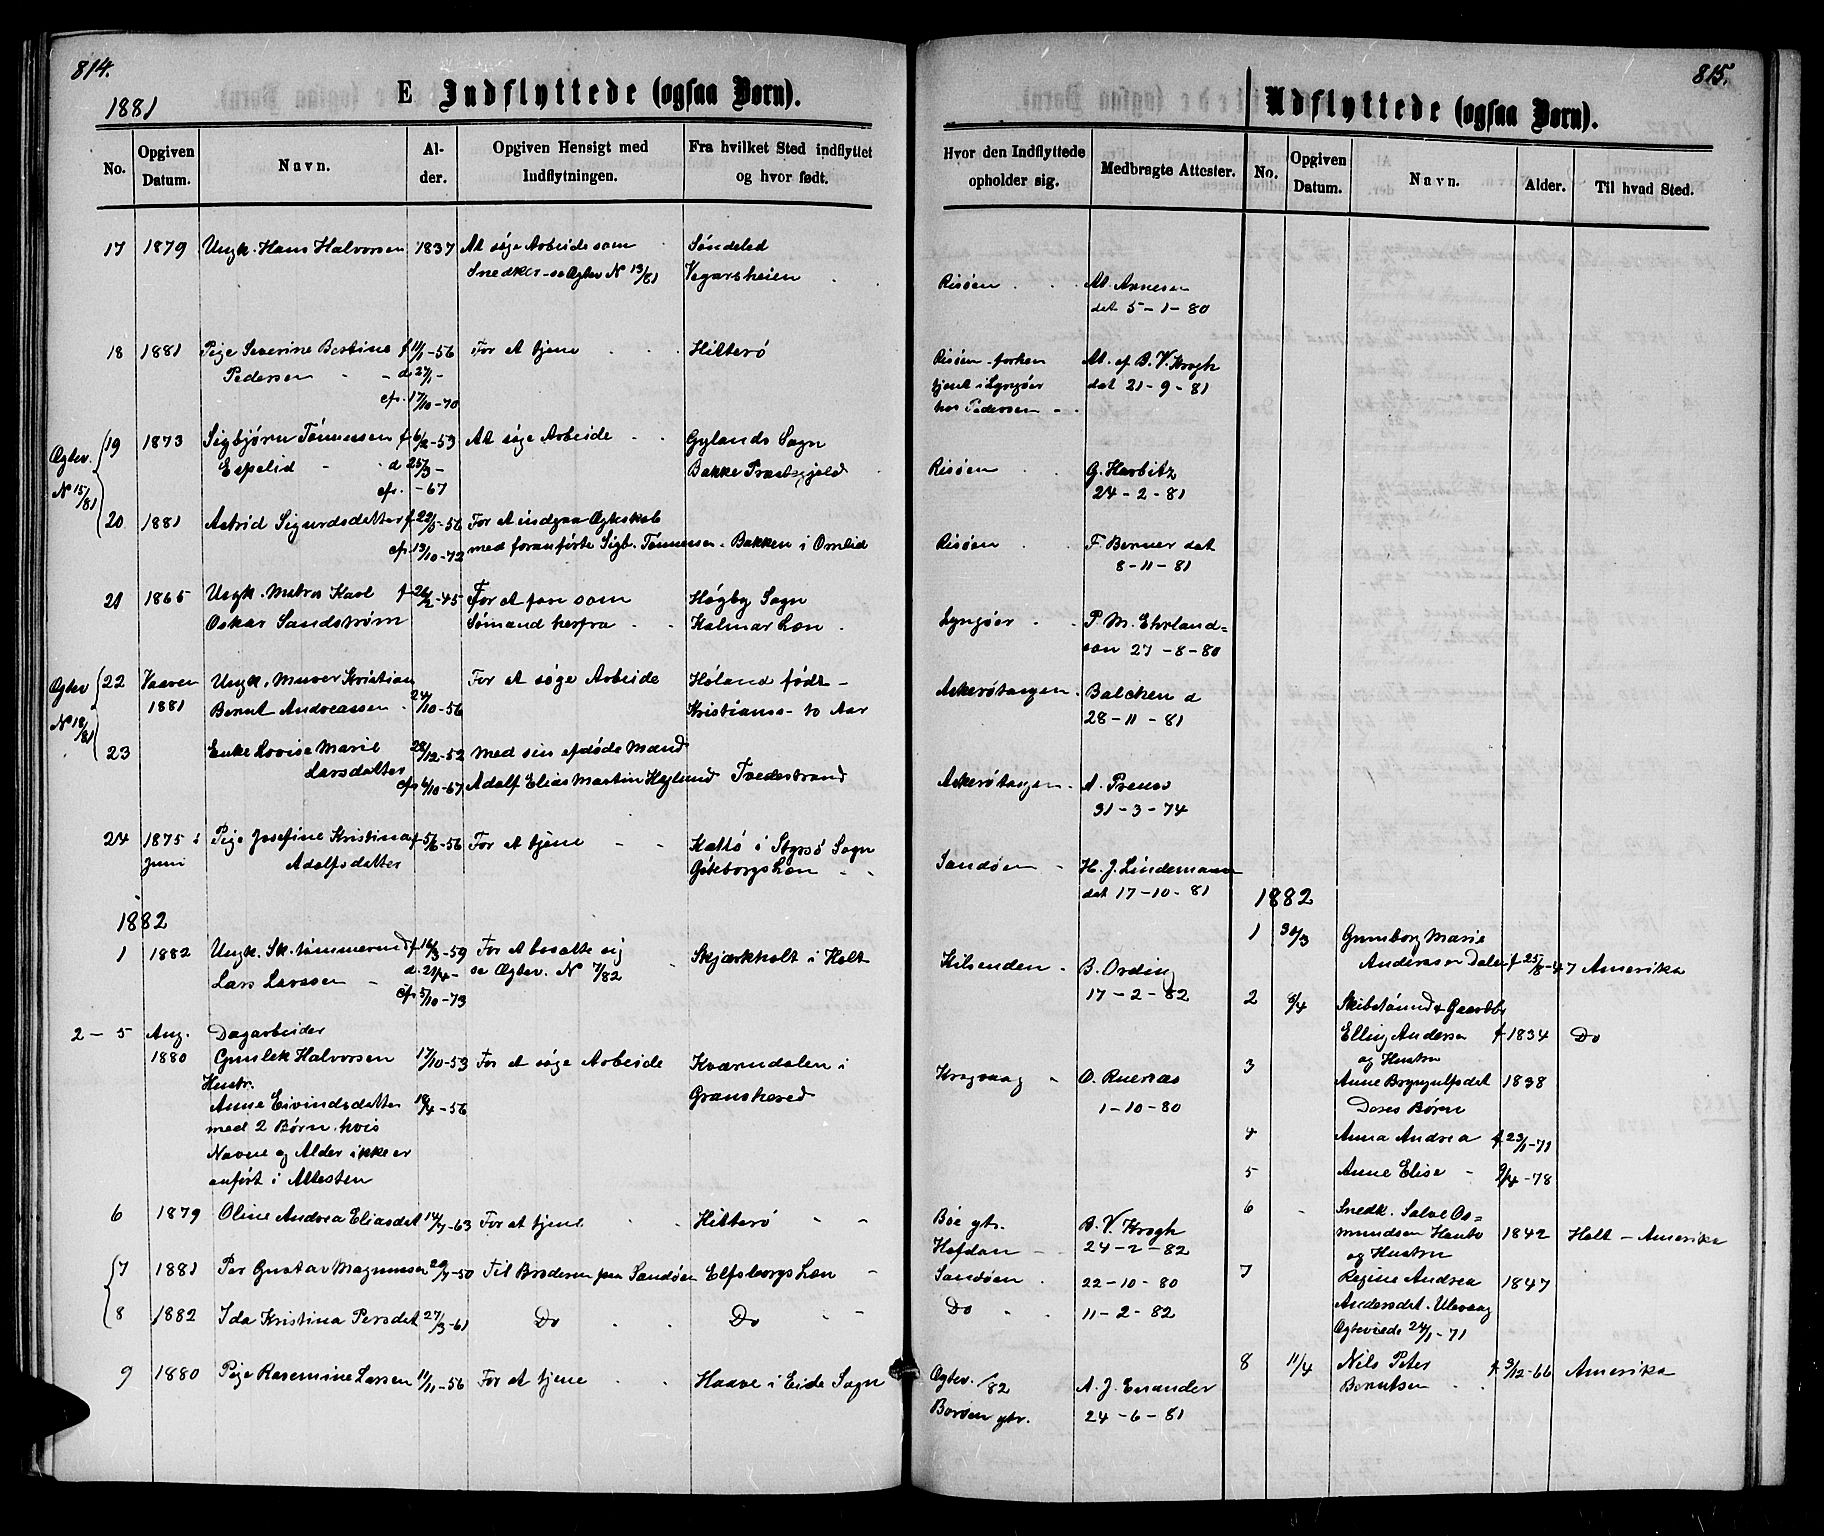 814.
1881
E Indflyttede (ogsaa Børn).
No. Opgiven Datum. Navn. Al-der. Opgiven Hensigt med Indflytningen. Fra hvilket Sted indflyttet og hvor født.
17 1879 Ungk. Hans Halvorsen 1837 At søge Arbeide som Søndeled
Snedker - se Ægtev N 13/81 Vegarsheien
18 1881 Pige Severine Bertine f 11/1-56 For at tjene Hitterø
Pedersen d 27/1-
cfs. 17/10-70
Ægtev. N 15/81
19 1873 Sigbjørn Tønnessen f 6/2-53 At søge Arbeide Gylands Sogn
Espelid d 25/3- Bakke Præstegjeld
cfs. -67
20 1881 Astrid Sigurdsdatter f 22/5-56 For at indgaa Ægteskab
cfs 13/10-72 med foranførte Sigb. Tønnessen. Bakken i Omlid
21 1865 Ungk. Matros Karl f 26/2-45 For at fare som Høgby Sogn
Oskar Sandstrøm Sømand herfra Kalmar Læn
Ægtev N 18/81
22 Vaaren Ungk. Murer Kristian For at søge Arbeide Høland født -
1881 Bernt Andreassen 24/10-56 Kristians- to Aar
23 Enke Lovise Marie 28/12-52 med sin afdøde Mand
Larsdatter cfs 6/10-67 Adolf Elias Martin Høglund Tvedestrand
24 1875 i Pige Josefine Kristina f 5/6-56 For at tjene Kaltø i Styrsö Sogn
Juni Adolfsdatter Gøteborgs Læn
1882
1 1882 Ungk. Sk.tømmermd f 16/3-59 For at bosætte sig Skjærkholt i Holt
Lars Larssen d. 21/4- se Ægtev. N 7/82
cfs 5/10-73
2 - 5 Aug. Dagarbeider
1880 Gunlek Halvorsen 17/10-53 For at søge Arbeide Kværndalen i
Hustr. Granshered
Anne Eivindsdatter 18/4-56
med 2 Børn hvis
Navne og Alder ikke er
anført i Attesten
6 1879 Oline Andrea Eliasdat 14/7-63 For at tjene Hitterø
7 1881 Per Gustav Magnusson 29/7-50 Til Broderen paa Sandøen Elfsborgs Læn
8 1882 Ida Kristina Persdat 27/3-61 Do Do
9 1880 Pige Rasemine Larsen 11/11-56 For at tjene Haave i Eide Sogn
815.
Udflyttede (ogsaa Børn).
Hvor den Indflyttede opholder sig. Medbragte Attester. No. Opgiven Datum. Navn. Alder. Til hvad Sted.
Risøen At. Arnesen
dat 5-1-80
Risøen - forhen At. af B. V. Krogh
tjent i Lyngøer dat 21-9-81
hos Pedersen
Risøen G. Harbitz
24-2-81
Risøen F. Berner dat
8-11-81
Lyngøer P. M. Ehrland=
son 27-8-80
Askerøtangen Balchen d
28-11-81
Askerøtangen A. Preus
31-3-74
Sandøen H. J. Lindemann
dat 17-10-81
Kilsenden B. Ording
17-2-82
Kragvaag O. Ruenæs
1-10-80
Boe gtr. B. V. Krogh
Hafdan 24-2-82
Sandøen 22-10-80
Do 11-2-82
Ægtev. /82 A. J. Enander
Borøen gtr. 24-6-81
1882
1 30/3 Gunborg Marie
Andersen Dalen f 25/8-47 Amerika
2 3/4 Skibstømmd & Gaardbr
Elling Andersen f 1834 Do
og Hustru
3 Anne Brynjulfsdat 1838
Deres Børn
4 Anna Andrea f 23/1-71
5 Anne Elise 9/4-78
6 Snedk. Salve Os=
mundsen Hauto 1842 Holt - Amerika
og Hustru
7 Regine Andrea 1847
Andersdat. Ulevaag
Ægteviede 24/1-71
8 11/4 Nils Peter f 3/12-66 Amerika
Berntsen